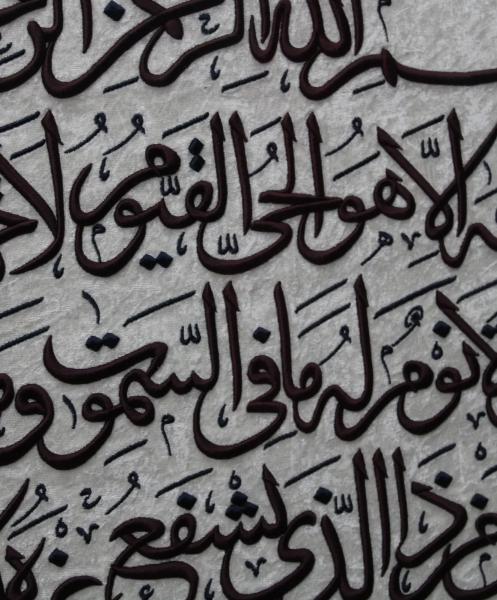 سْمِ اللهِ الرَّحْمٰنِ
اِلَّا هُوَ الْحَىُّ الْقَيُّومُ لَا
لَا نَوْمٌ لَهُ مَا فِى السَّمٰوَاتِ وَ
مَنْ ذَا الَّذِى يَشْفَعُ